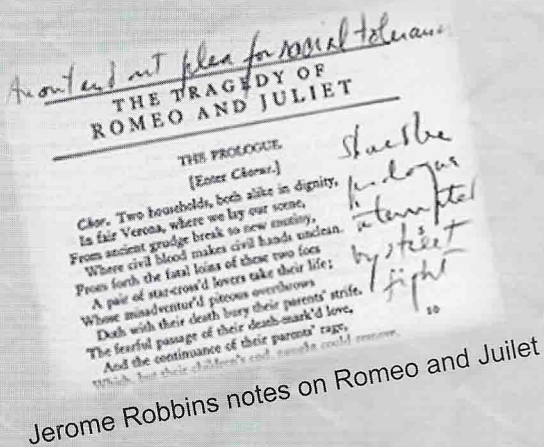 An out and out plea for racial tolerance
THE TRAGEDY OF
ROMEO AND JULIET
THE PROLOGUE
[Enter Chorus.]
Chor. Two households, both alike in dignity,
In fair Verona, where we lay our scene,
From ancient grudge break to new mutiny,
Where civil blood makes civil hands unclean.
From forth the fatal loins of these two foes
A pair of star-cross'd lovers take their life;
Whose misadventur'd piteous overthrows
Doth with their death bury their parents' strife.
The fearful passage of their death-mark'd love,
And the continuance of their parents' rage,
Which, but their children's end, naught could remove,
prologue
interrupted
by street
fight
10
Jerome Robbins notes on Romeo and Juilet